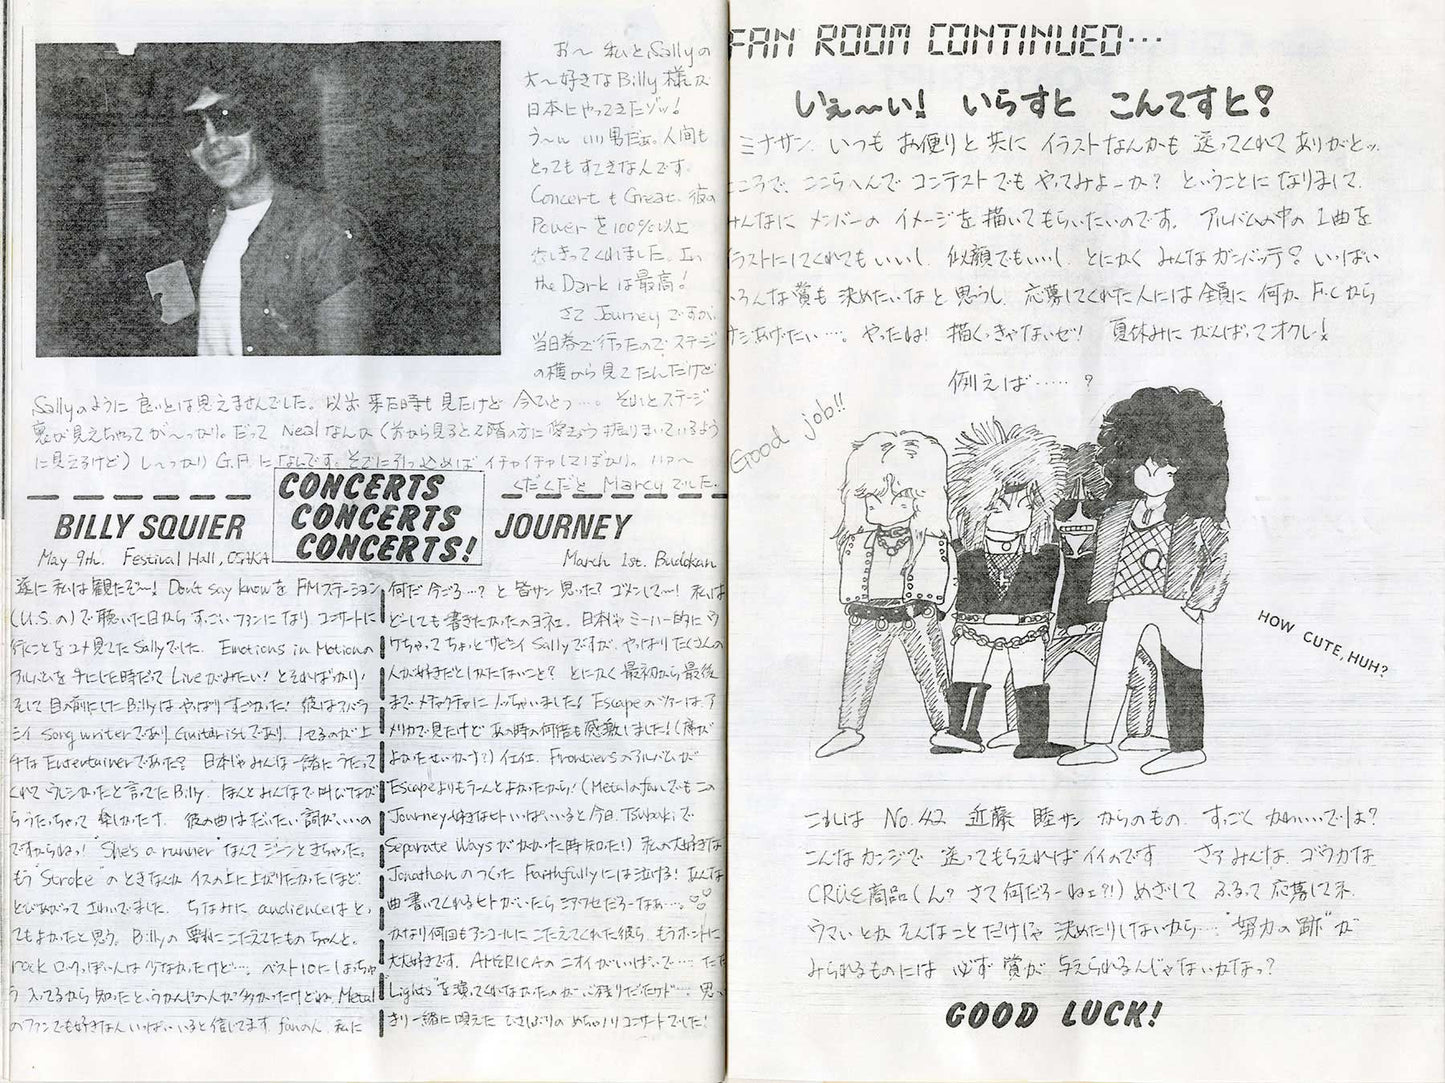 お〜 私とSallyの
大〜好きなBilly様が
日本にやってきたゾッ!
う〜ん いい男だぁ。人間も
とってもすてきなんです。
Concertも Great. 彼の
Powerを100%以上
出しきってくれました。In
the Darkは最高!
さて Journeyですが、
当日券で行ったので ステージ
の横から見てたんだけど
Sallyのように 良いとは思えませんでした。以前 来た時も 見たけど 今ひとつ…。それとステージ
裏が見えちゃってが〜っかり。だって Nealなんか(前から見ると2階の方に愛きょう振りまいているよう
に見えるけど) し〜っかり G.F.になんです。そでに引っ込めば イチャイチャしてばかり。ハァ〜
くだくだと Marcyでした。
CONCERTS
CONCERTS
CONCERTS!
BILLY SQUIER
May 9th. Festival Hall, OSAKA
遂に 私は観たぞ〜! Don't say knowを FMステーション
(U.S.の)で 聴いた日から すっごいファンになり コンサートに
行くことを ユメ見てた Sallyでした. Emotions in Motionの
アルバムを 手にした時だって Liveがみたい! とそればっかり!
そして 目の前にしたBillyは やっぱりすごかった! 彼はスバラ
シイ Song writerであり Guitaristであり
なEntertainerであった? 日本じゃみんな一緒にうたって
くれて ウレシかったと言ってたBilly. ほんと みんなで叫びなが
らうたっちゃって 楽しかったナ. 彼の曲は だいたい 詞がいいの
ですからねっ! "She's a runner"なんて ジーンときちゃった。
もう "Stroke"のときなんか イスの上に上がりたかったほど.
ちなみに audienceはと,
てもよかったと思う。Billyの 要求に こたえてたもの ちゃんと。
rock ロックっぽい人は 少なかったけど…. ベスト10にしょっちゃ
う入ってるから 知ったというかんじの人が多かったけどね. Metal
のファンでも好きな人 いっぱいいると信じてます
JOURNEY
March 1st. Budokan
何だ 今ごろ…? と 皆サン 思った? ゴメンして〜! 私は
どーしても 書きたかったのヨネェ. 日本じゃ ミーハー的に ウ
ケちゃって ちょっとサビシイ Sallyですが, やっぱりたくさんの
人が好きだとしかたないこと? とにかく 最初から 最後
まで メチャクチャに ノッちゃいました! Escapeのツアーは ア
メリカで 見たけど あの時の何倍も 感激しました! (席が
よかったせいかナ?) 仕仕. Frontiersのアルバムが
Escapeよりもうーんとよかったから! (Metalのfanでも この
Journey好きなヒトいっぱいいると 今日. Tsubakiで
Separate Waysがかかった時 知た!) 私の大好きな
Jonathanのつくった Faithfullyには 泣ける! あんな
曲 書いてくれるヒトがいたら シアワセだろーなぁ…。
かなり何回もアンコールに こたえてくれた彼ら. もうホントに
大大好きです。AMERICAの ニオイがいっぱいで…. ただ
"Lights"を演ってくれなかったのが 心残りだったケド…. 思い
きり一緒に唄えた ひさぶりの めちゃノリコンサートでした!
FAN ROOM CONTINUED…
いぇ〜い! いらすと こんてすと?
ミナサン、いつも お便りと共に イラストなんかも 送ってくれて ありがとッ.
ところで、ここらへんで コンテストでも やってみよーか? ということに なりまして、
みんなに メンバーの イメージを 描いてもらいたいのです。 アルバムの中の 1曲を
イラストにしてくれてもいいし、似顔でもいいし、とにかく みんなガンバッテ? いっぱい
いろんな賞も 決めたいなと 思うし、応募してくれた人には 全員に 何か F・Cから
さしあげたい…。 やったね! 描くっきゃないゼ! 夏休みに がんばってオクレ!
例えば……?
Good job!!
HOW CUTE, HUH?
これは No.42 近藤 睦サン からのもの. すっごく かわいいでしょ?
こんなカンジで 送ってもらえれば イイのです さァ みんな. ゴウカな
CRÜE商品 (ん? さて何だろーねェ?!) めざして ふるって 応募して来.
ウマいとか そんなことだけじゃ 決めたりしないから…. "努力の跡"が
みられるものには 必ず 賞が 与えられるんじゃないかなっ?
GOOD LUCK!